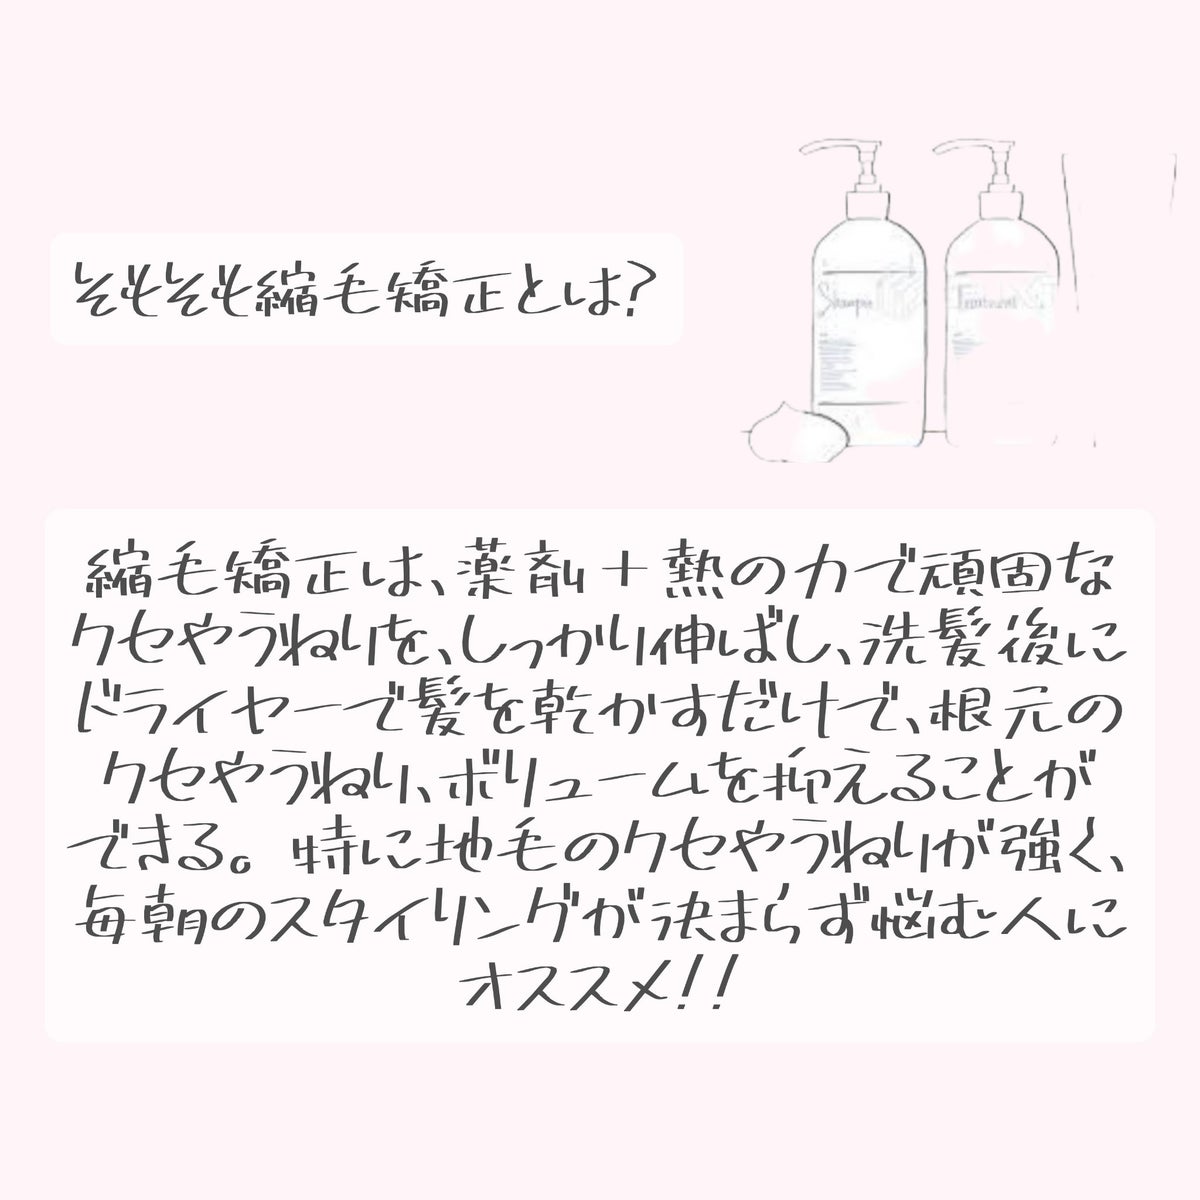 そもそも縮毛矯正とは?
Shampoo
Treatment
縮毛矯正は、薬剤+熱の力で頑固な
クセやうねりを、しっかり伸ばし、洗髪後に
ドライヤーで髪を乾かすだけで、根元の
クセやうねり、ボリュームを抑えることが
できる。特に地毛のクセやうねりが強く、
毎朝のスタイリングが決まらず悩む人に
オススメ!!